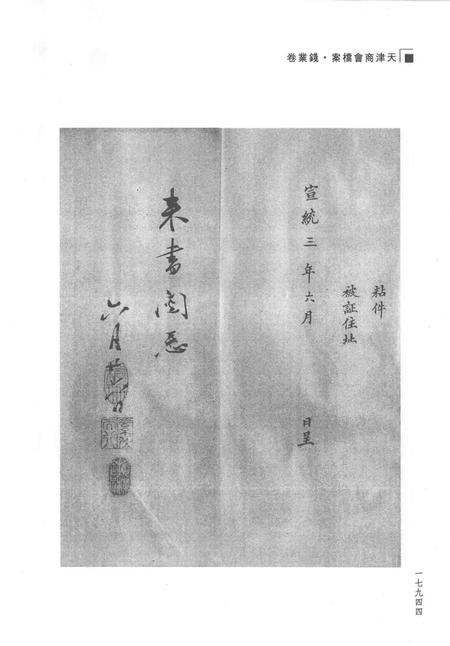 天津商會檔案·錢業卷
粘件
被証住址
宣統三年六月 日呈
来書閱悉
六月廿日
一七九四四